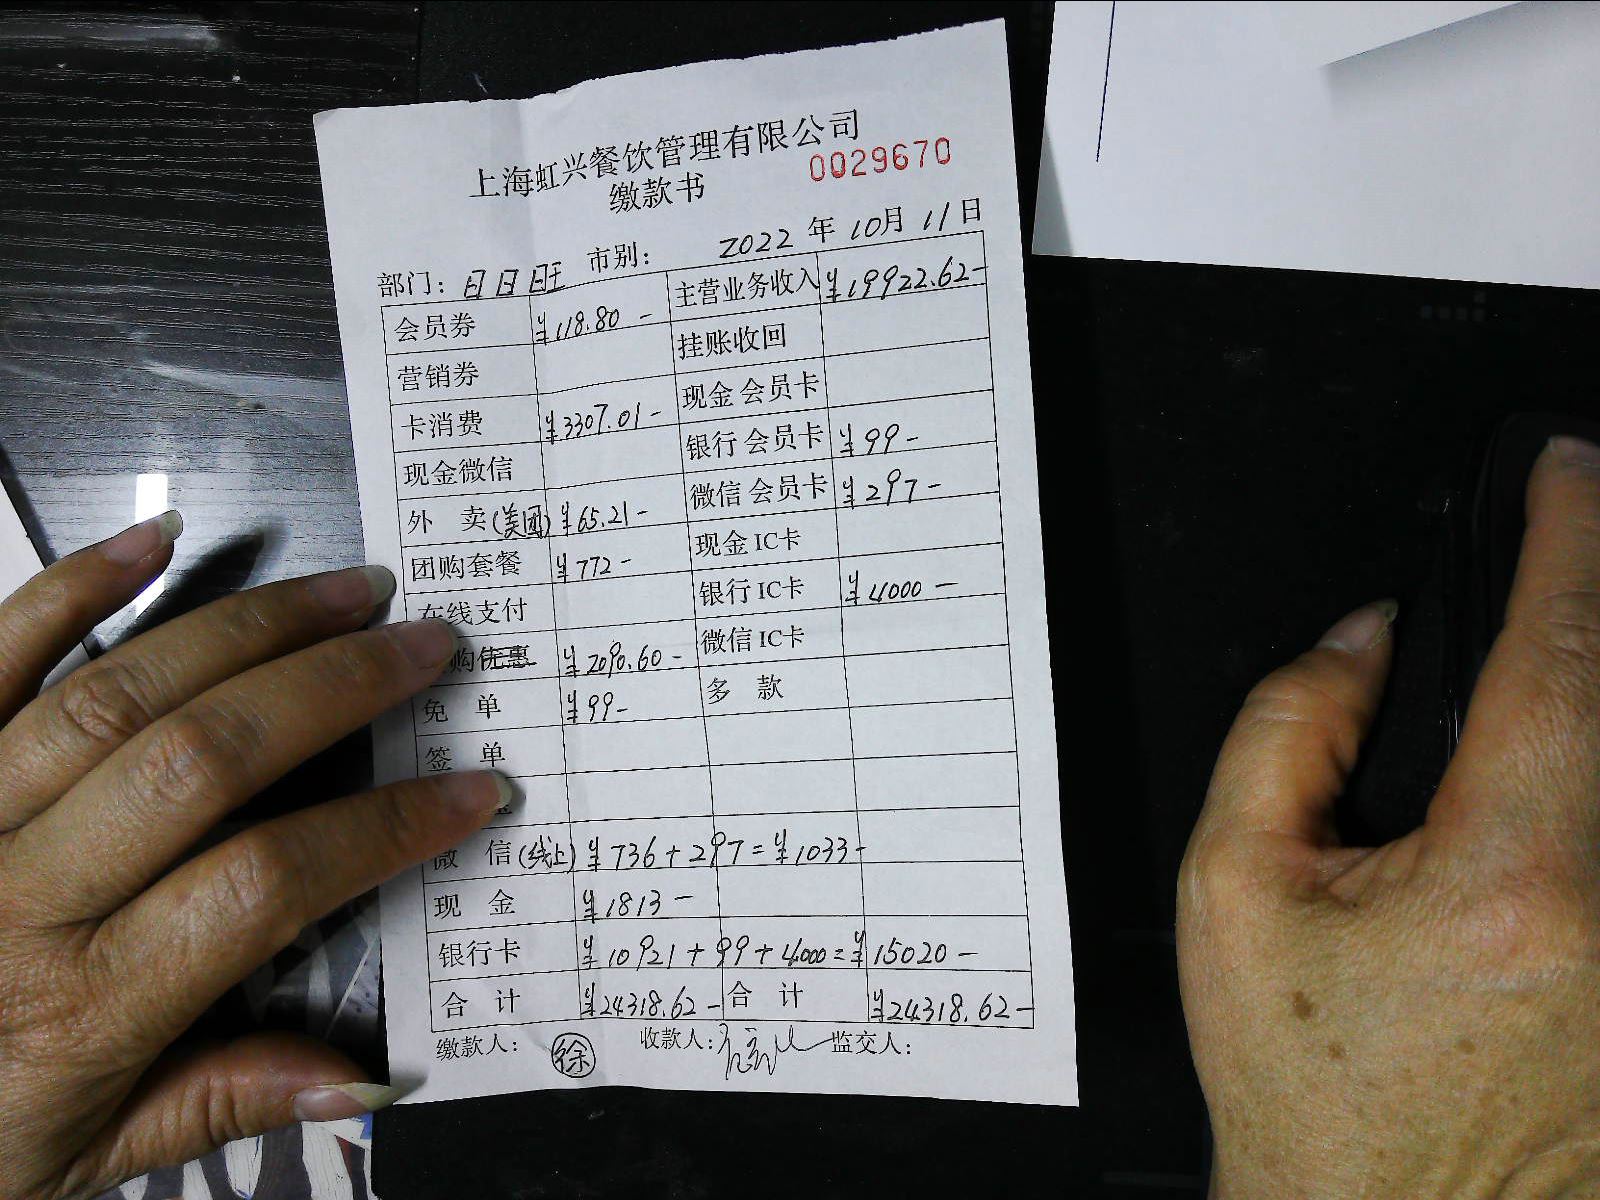 上海虹兴餐饮管理有限公司
缴款书 0029670
部门: 日日班 市别: 2022 年 10月 11日
会员券 ¥118.80 - 主营业务收入 ¥19922.62-
营销券 挂账收回
卡消费 ¥3307.01- 现金 会员卡
现金微信 银行 会员卡 ¥99-
外 卖(美团) ¥65.21- 微信 会员卡 ¥297-
团购套餐 ¥772- 现金 IC卡
在线支付 银行 IC卡 ¥4000 -
购优惠 ¥2090.60 - 微信 IC卡
免 单 ¥99- 多 款
签 单
微 信(线上) ¥736+297=¥1033-
现 金 ¥1813 -
银行卡 ¥10921+99+4000=¥15020 -
合 计 ¥24318.62- 合 计 ¥24318.62-
缴款人: 徐 收款人: 监交人: